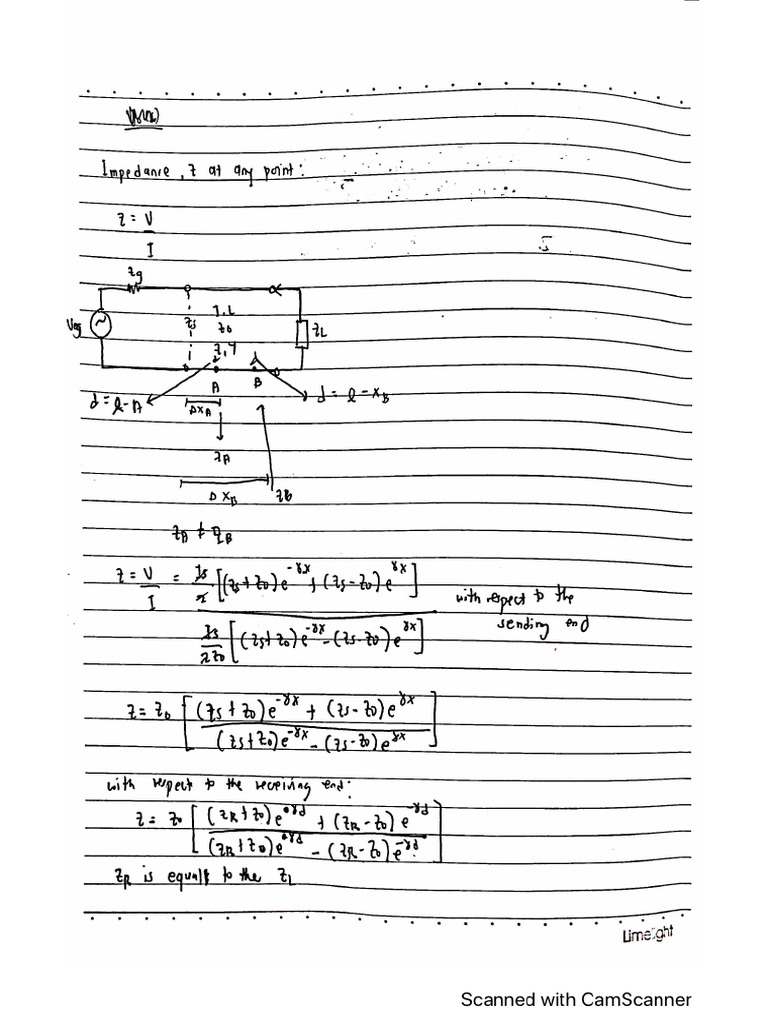 Impedance, Z at any point:
Z = V
I
Zg
T.L
Zs Zo ZL
Z, γ
A B
d = l - A d = l - xB
ΔxA
ZA
ΔxB ZB
ZA ≠ ZB
Z = V/I = Is/2 [(Zs+Zo)e^-γx + (Zs-Zo)e^γx]
Is/2Zo [(Zs+Zo)e^-γx - (Zs-Zo)e^γx]
with respect to the
sending end
Z = Zo [(Zs+Zo)e^-γx + (Zs-Zo)e^γx
(Zs+Zo)e^-γx - (Zs-Zo)e^γx]
with respect to the receiving end:
Z = Zo [(ZR+Zo)e^+γd + (ZR-Zo)e^-γd
(ZR+Zo)e^+γd - (ZR-Zo)e^-γd]
ZR is equals to the ZL
Limelight
Scanned with CamScanner